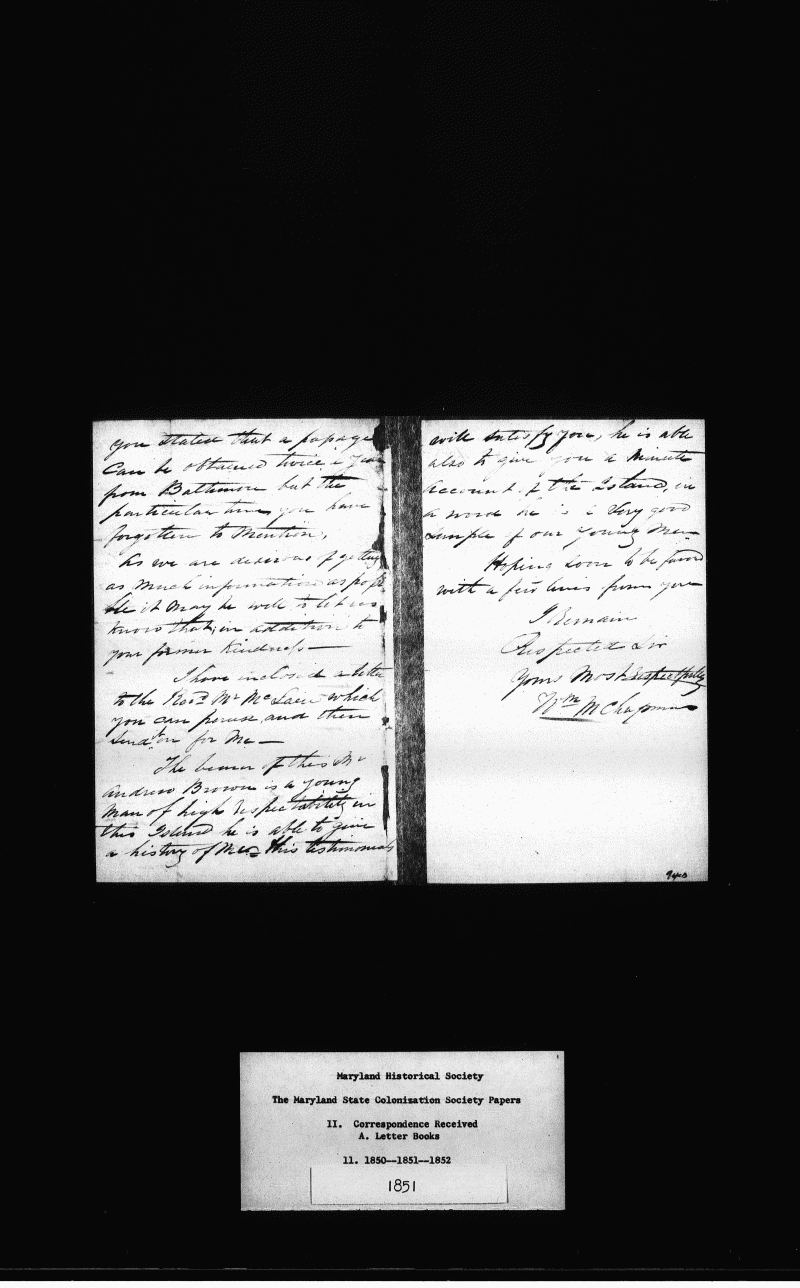 you stated that a passage
Can be obtained twice a Year
from Baltimore but the
particular time you have
forgotten to Mention,
As we are desirous of getting
as much information as possi
ble it may be well to let us
know that, in addition to
your former Kindness—
I have inclosed a letter
to the Revd Mr McLain which
you can peruse and then
send it on for Me—
The bearer of this Mr
Andrew Brown is a young
Man of high respectability in
this Island he is able to give
a history of Me his testimonials
will satisfy you, he is able
also to give you a Minute
Account of the Island, in
a word he is a Very good
Sample of our Young Men—
Hoping Soon to be favord
with a few lines from you
I Remain
Respected Sir
Yours Most Respectfully
Wm M Chapman
Maryland Historical Society
The Maryland State Colonization Society Papers
II. Correspondence Received
A. Letter Books
11. 1850--1851--1852
1851